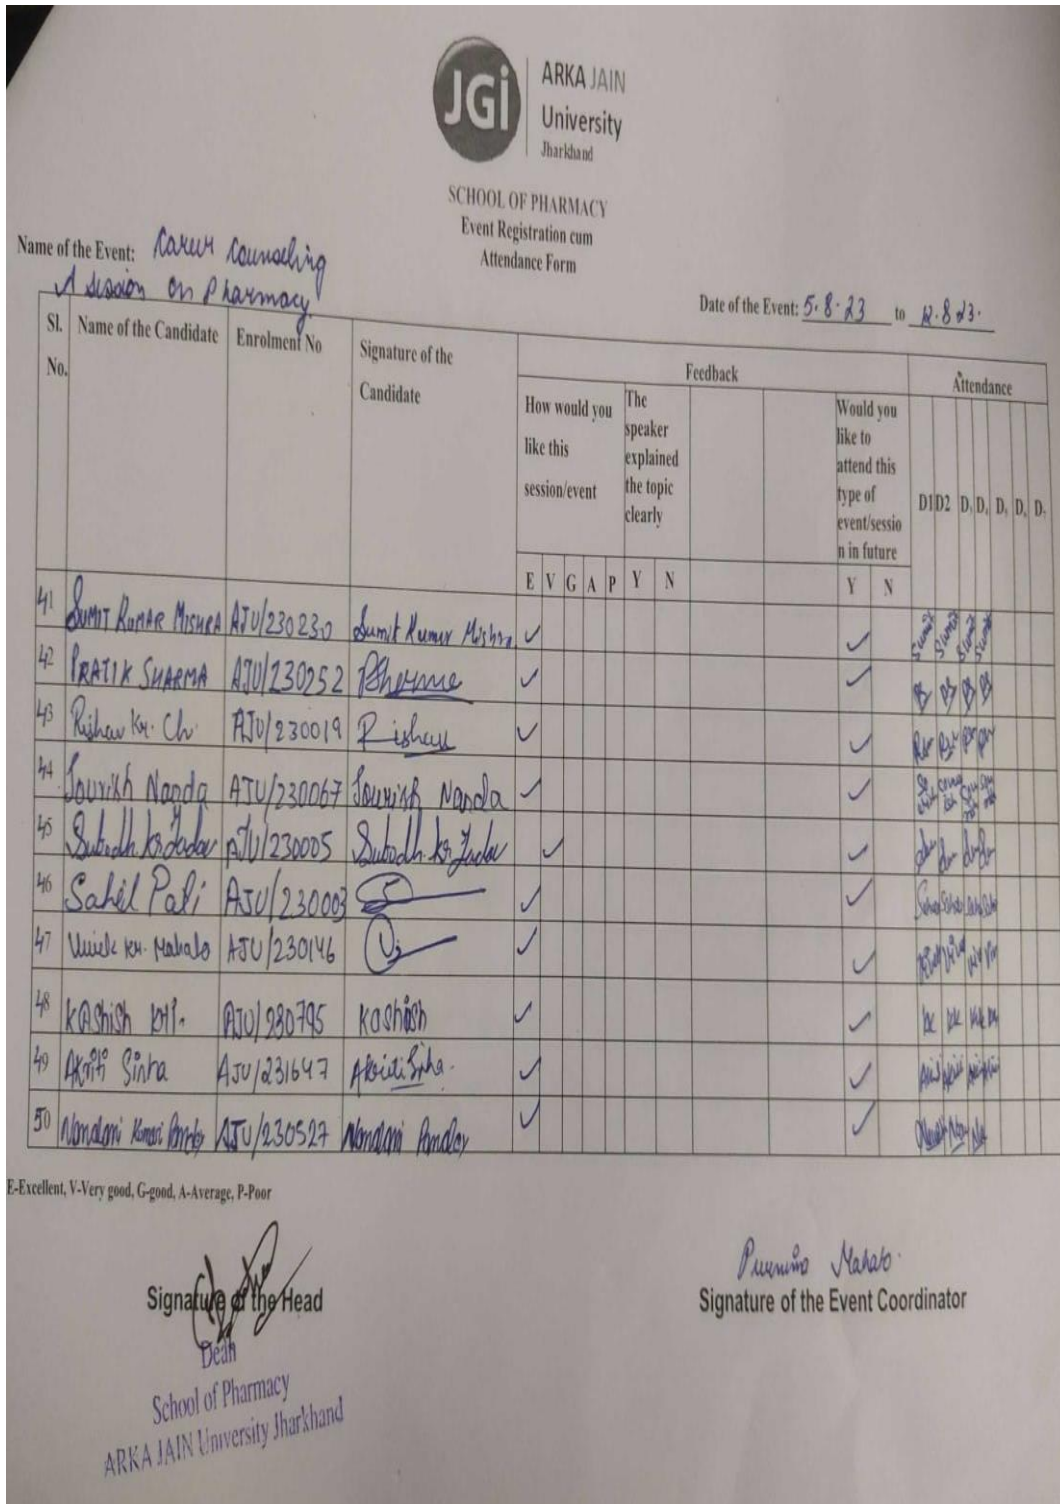 JGi
ARKA JAIN
University
Jharkhand
SCHOOL OF PHARMACY
Event Registration cum
Attendance Form
Name of the Event: Career Counseling
A session on Pharmacy
Date of the Event: 5.8.23 to 12.8.23.
Sl. No. Name of the Candidate Enrolment No Signature of the Candidate Feedback Attendance
How would you like this session/event
The speaker explained the topic clearly
Would you like to attend this type of event/session in future
D1 D2 D3 D4 D5 D6 D7
E V G A P Y N Y N
41 SUMIT KUMAR MISHRA AJU/230230 Sumit Kumar Mishra ✓ ✓ Sumit Sumit Sumit Sumit
42 PRATIK SHARMA AJU/230252 PSharma ✓ ✓ PS PS PS PS
43 Rishav Kr. Ch. AJU/230019 Rishav ✓ ✓
44 Sourish Nanda AJU/230067 Sourish Nanda ✓ ✓
45 Subodh kr Yadav AJU/230005 Subodh kr Yadav ✓ ✓
46 Sahil Pati AJU/230003 ✓ ✓
47 Vivek Kr. Mahato AJU/230146 ✓ ✓
48 KAShish AJU/230795 Kashish ✓ ✓
49 AKriti Sinha AJU/231647 Akriti Sinha. ✓ ✓
50 Nandani Kumari Pandey AJU/230527 Nandani Pandey ✓ ✓
E-Excellent, V-Very good, G-good, A-Average, P-Poor
Signature of the Head
Dean
School of Pharmacy
ARKA JAIN University Jharkhand
Mahato.
Signature of the Event Coordinator